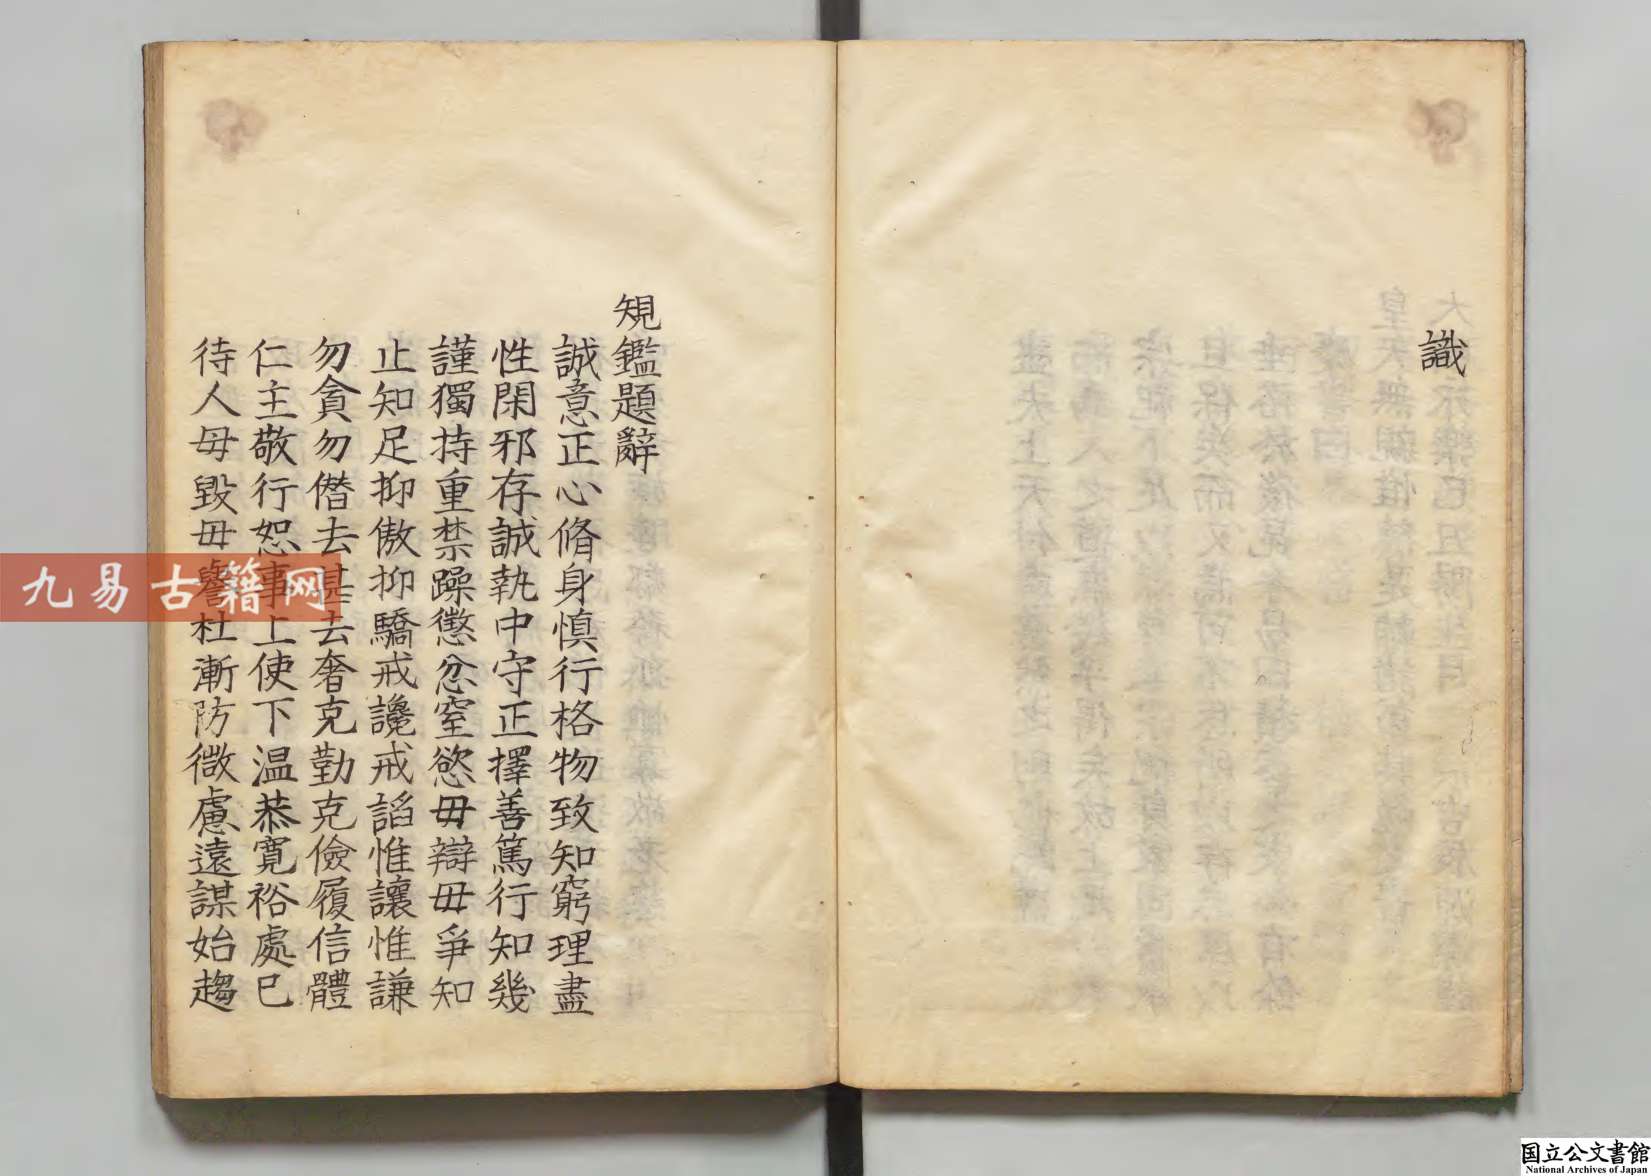 識
規鑑題辭
誠意正心脩身慎行格物致知窮理盡
性閑邪存誠執中守正擇善篤行知幾
謹獨持重禁躁懲忿窒慾毋辯毋爭知
止知足抑傲抑驕戒讒戒謟惟讓惟謙
勿貪勿僭去甚去奢克勤克儉履信體
仁主敬行恕事上使下温恭寬裕處已
待人毋毀毋譽杜漸防微慮遠謀始趨
九易古籍网
国立公文書館
National Archives of Japan